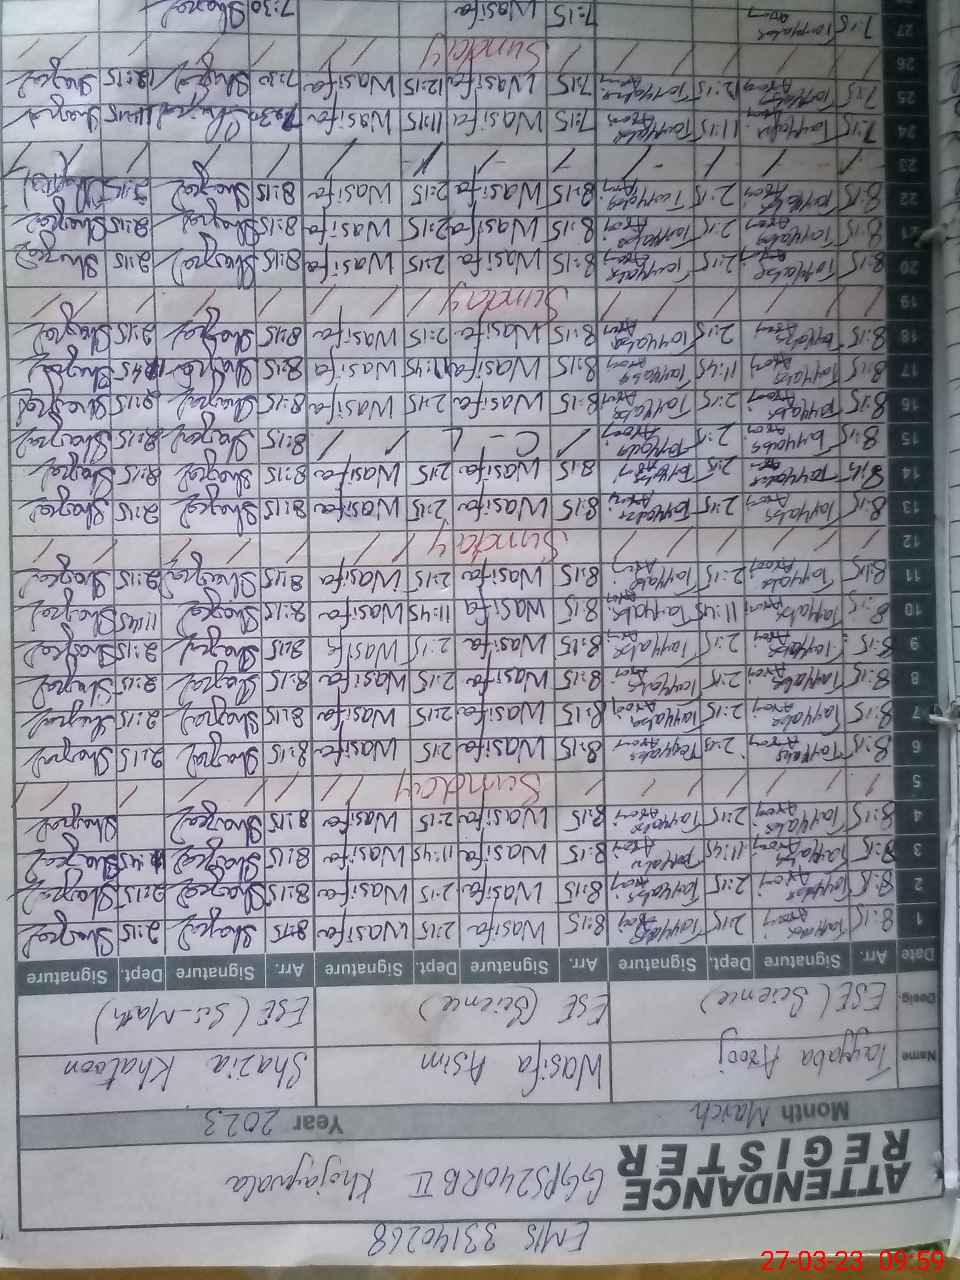 EMIS 33140268
ATTENDANCE REGISTER GGPS 240RB II Khojaywala
Month March Year 2023
Name Tayyaba Arooj Wasifa Asim Shazia Khatoon
Desig. ESE (Science) ESE (Science) ESE (Sci-Math)
Date Arr. Signature Dept. Signature Arr. Signature Dept. Signature Arr. Signature Dept. Signature
1 8:15 Tayyaba Arooj 2:15 Tayyaba Arooj 8:15 Wasifa 2:15 Wasifa 8:15 Shazia 2:15 Shazia
2 8:15 Tayyaba Arooj 2:15 Tayyaba Arooj 8:15 Wasifa 2:15 Wasifa 8:15 Shazia 2:15 Shazia
3 8:15 Tayyaba Arooj 11:45 Tayyaba Arooj 8:15 Wasifa 11:45 Wasifa 8:15 Shazia 11:45 Shazia
4 8:15 Tayyaba Arooj 2:15 Tayyaba Arooj 8:15 Wasifa 2:15 Wasifa 8:15 Shazia Shazia
5 Sunday
6 8:15 Tayyaba Arooj 2:15 Tayyaba Arooj 8:15 Wasifa 2:15 Wasifa 8:15 Shazia 2:15 Shazia
7 8:15 Tayyaba Arooj 2:15 Tayyaba Arooj 8:15 Wasifa 2:15 Wasifa 8:15 Shazia 2:15 Shazia
8 8:15 Tayyaba Arooj 2:15 Tayyaba Arooj 8:15 Wasifa 2:15 Wasifa 8:15 Shazia 2:15 Shazia
9 8:15 Tayyaba Arooj 2:15 Tayyaba Arooj 8:15 Wasifa 2:15 Wasifa 8:15 Shazia 2:15 Shazia
10 8:15 Tayyaba Arooj 11:45 Tayyaba Arooj 8:15 Wasifa 11:45 Wasifa 8:15 Shazia 11:45 Shazia
11 8:15 Tayyaba Arooj 2:15 Tayyaba Arooj 8:15 Wasifa 2:15 Wasifa 8:15 Shazia 2:15 Shazia
12 Sunday
13 8:15 Tayyaba Arooj 2:15 Tayyaba Arooj 8:15 Wasifa 2:15 Wasifa 8:15 Shazia 2:15 Shazia
14 8:15 Tayyaba Arooj 2:15 Tayyaba Arooj 8:15 Wasifa 2:15 Wasifa 8:15 Shazia 2:15 Shazia
15 8:15 Tayyaba Arooj 2:15 Tayyaba Arooj C - L 8:15 Shazia 2:15 Shazia
16 8:15 Tayyaba Arooj 2:15 Tayyaba Arooj 8:15 Wasifa 2:15 Wasifa 8:15 Shazia 2:15 Shazia
17 8:15 Tayyaba Arooj 11:45 Tayyaba Arooj 8:15 Wasifa 11:45 Wasifa 8:15 Shazia 11:45 Shazia
18 8:15 Tayyaba Arooj 2:15 Tayyaba Arooj 8:15 Wasifa 2:15 Wasifa 8:15 Shazia 2:15 Shazia
19 Sunday
20 8:15 Tayyaba Arooj 2:15 Tayyaba Arooj 8:15 Wasifa 2:15 Wasifa 8:15 Shazia 2:15 Shazia
21 8:15 Tayyaba Arooj 2:15 Tayyaba Arooj 8:15 Wasifa 2:15 Wasifa 8:15 Shazia 2:15 Shazia
22 8:15 Tayyaba Arooj 2:15 Tayyaba Arooj 8:15 Wasifa 2:15 Wasifa 8:15 Shazia 2:15 Shazia
23
24 7:15 Tayyaba Arooj 11:15 Tayyaba Arooj 7:15 Wasifa 11:15 Wasifa 7:30 Shazia 11:15 Shazia
25 7:15 Tayyaba Arooj 12:15 Tayyaba Arooj 7:15 Wasifa 12:15 Wasifa 7:30 Shazia 12:15 Shazia
26 Sunday
27 7:15 Tayyaba Arooj 7:15 Wasifa 7:30 Shazia
27-03-23 09:59